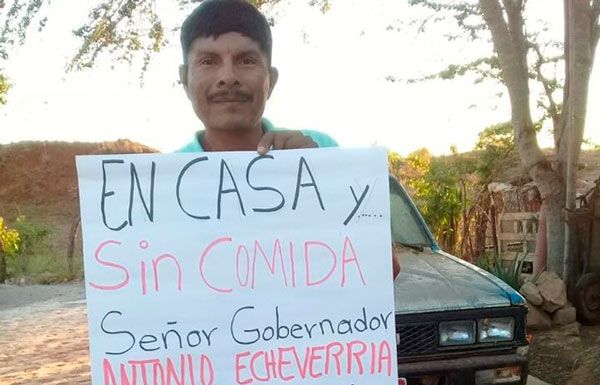 EN CASA y...
Sin COMIDA
Señor Gobernador
ANTONIO ECHEVERRIA